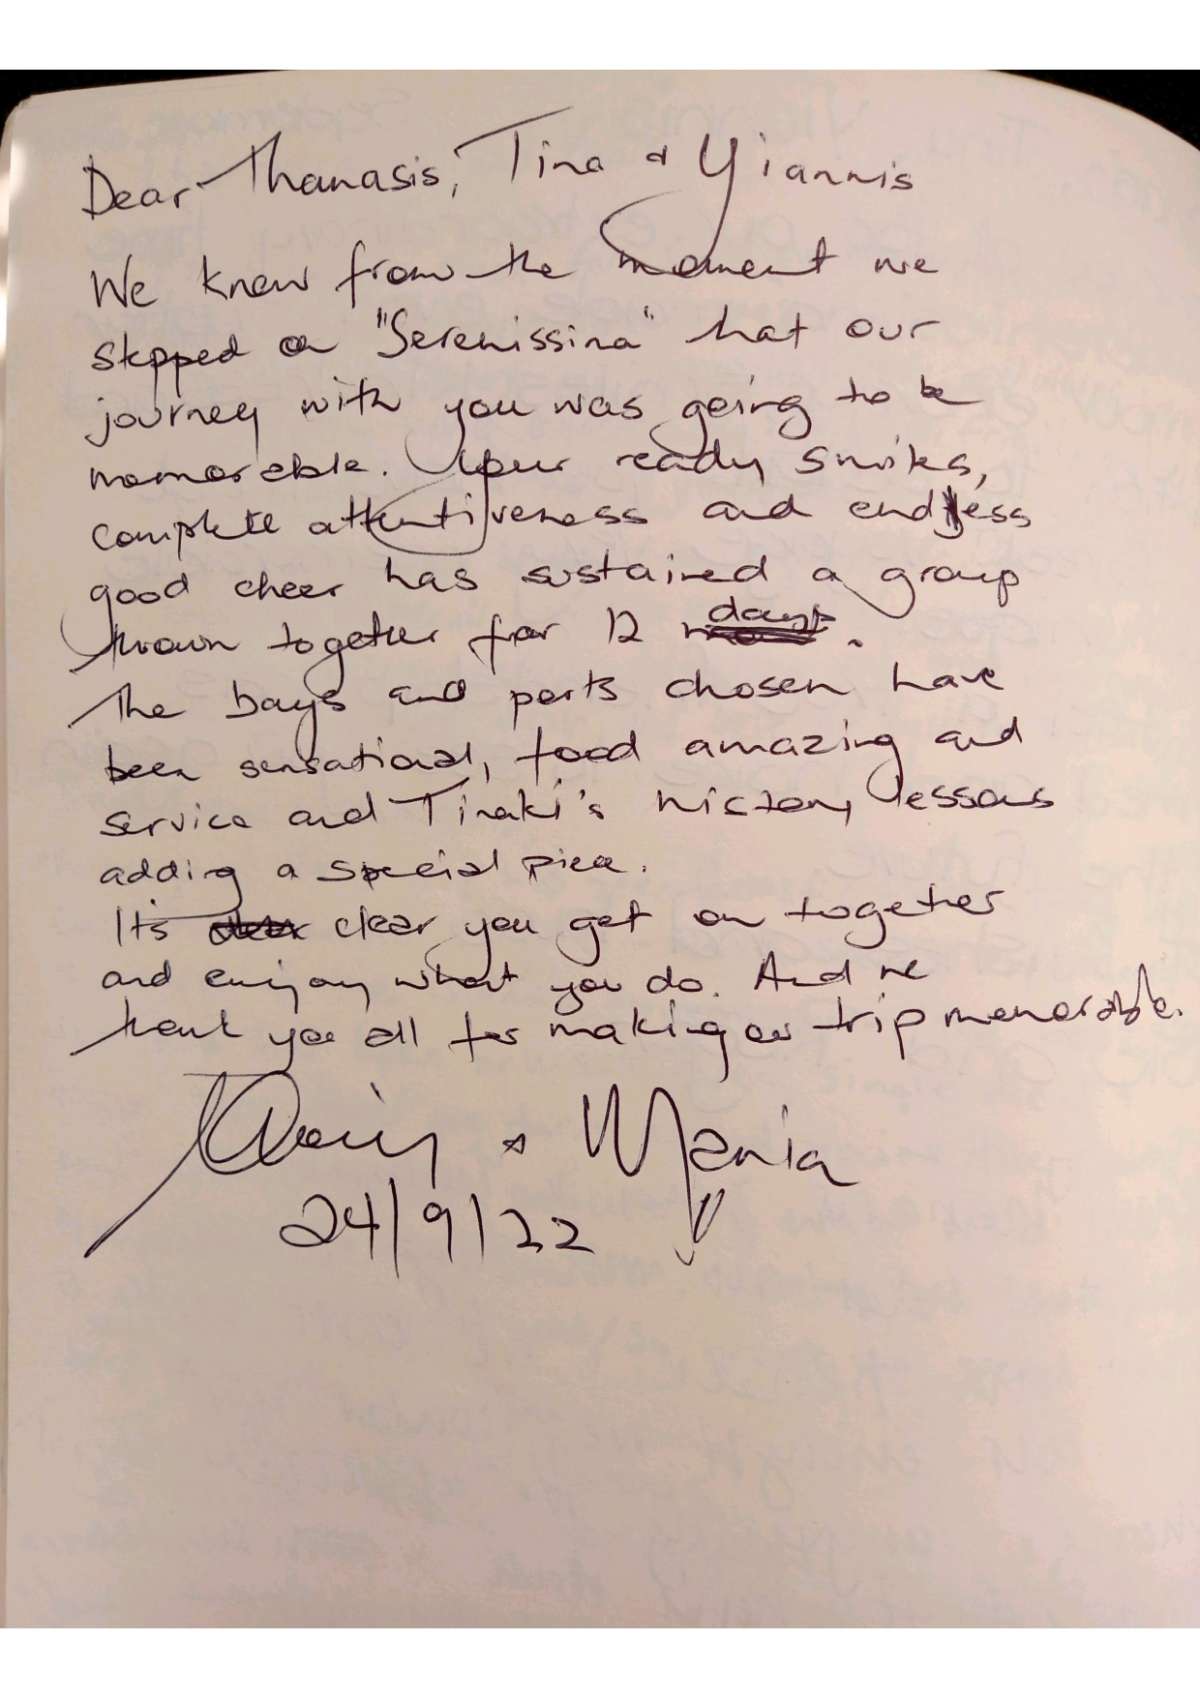 Dear Thanasis, Tina & Yiannis
We knew from the moment we
stepped on "Serenissima" that our
journey with you was going to be
memorable. Your ready smiles,
complete attentiveness and endless
good cheer has sustained a group
thrown together for 12 days.
The bays and ports chosen have
been sensational, food amazing and
service and Tinaki's history lessons
adding a special piece.
Its clear you get on together
and enjoy what you do. And we
thank you all for making our trip memorable.
& Mania
24/9/22